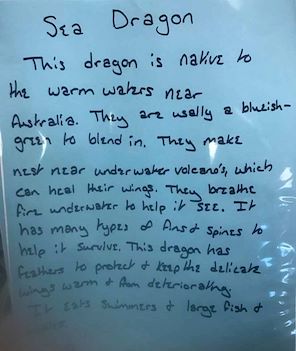 Sea Dragon
This dragon is native to
the warm waters near
Australia. They are usally a blueish-
green to blend in. They make
nest near underwater volcano's, which
can heal their wings. They breathe
fire underwater to help it see. It
has many types of fins & spines to
help it survive. This dragon has
feathers to protect & keep the delicate
wings warm & from deteriorating.
It eats swimmers & large fish &